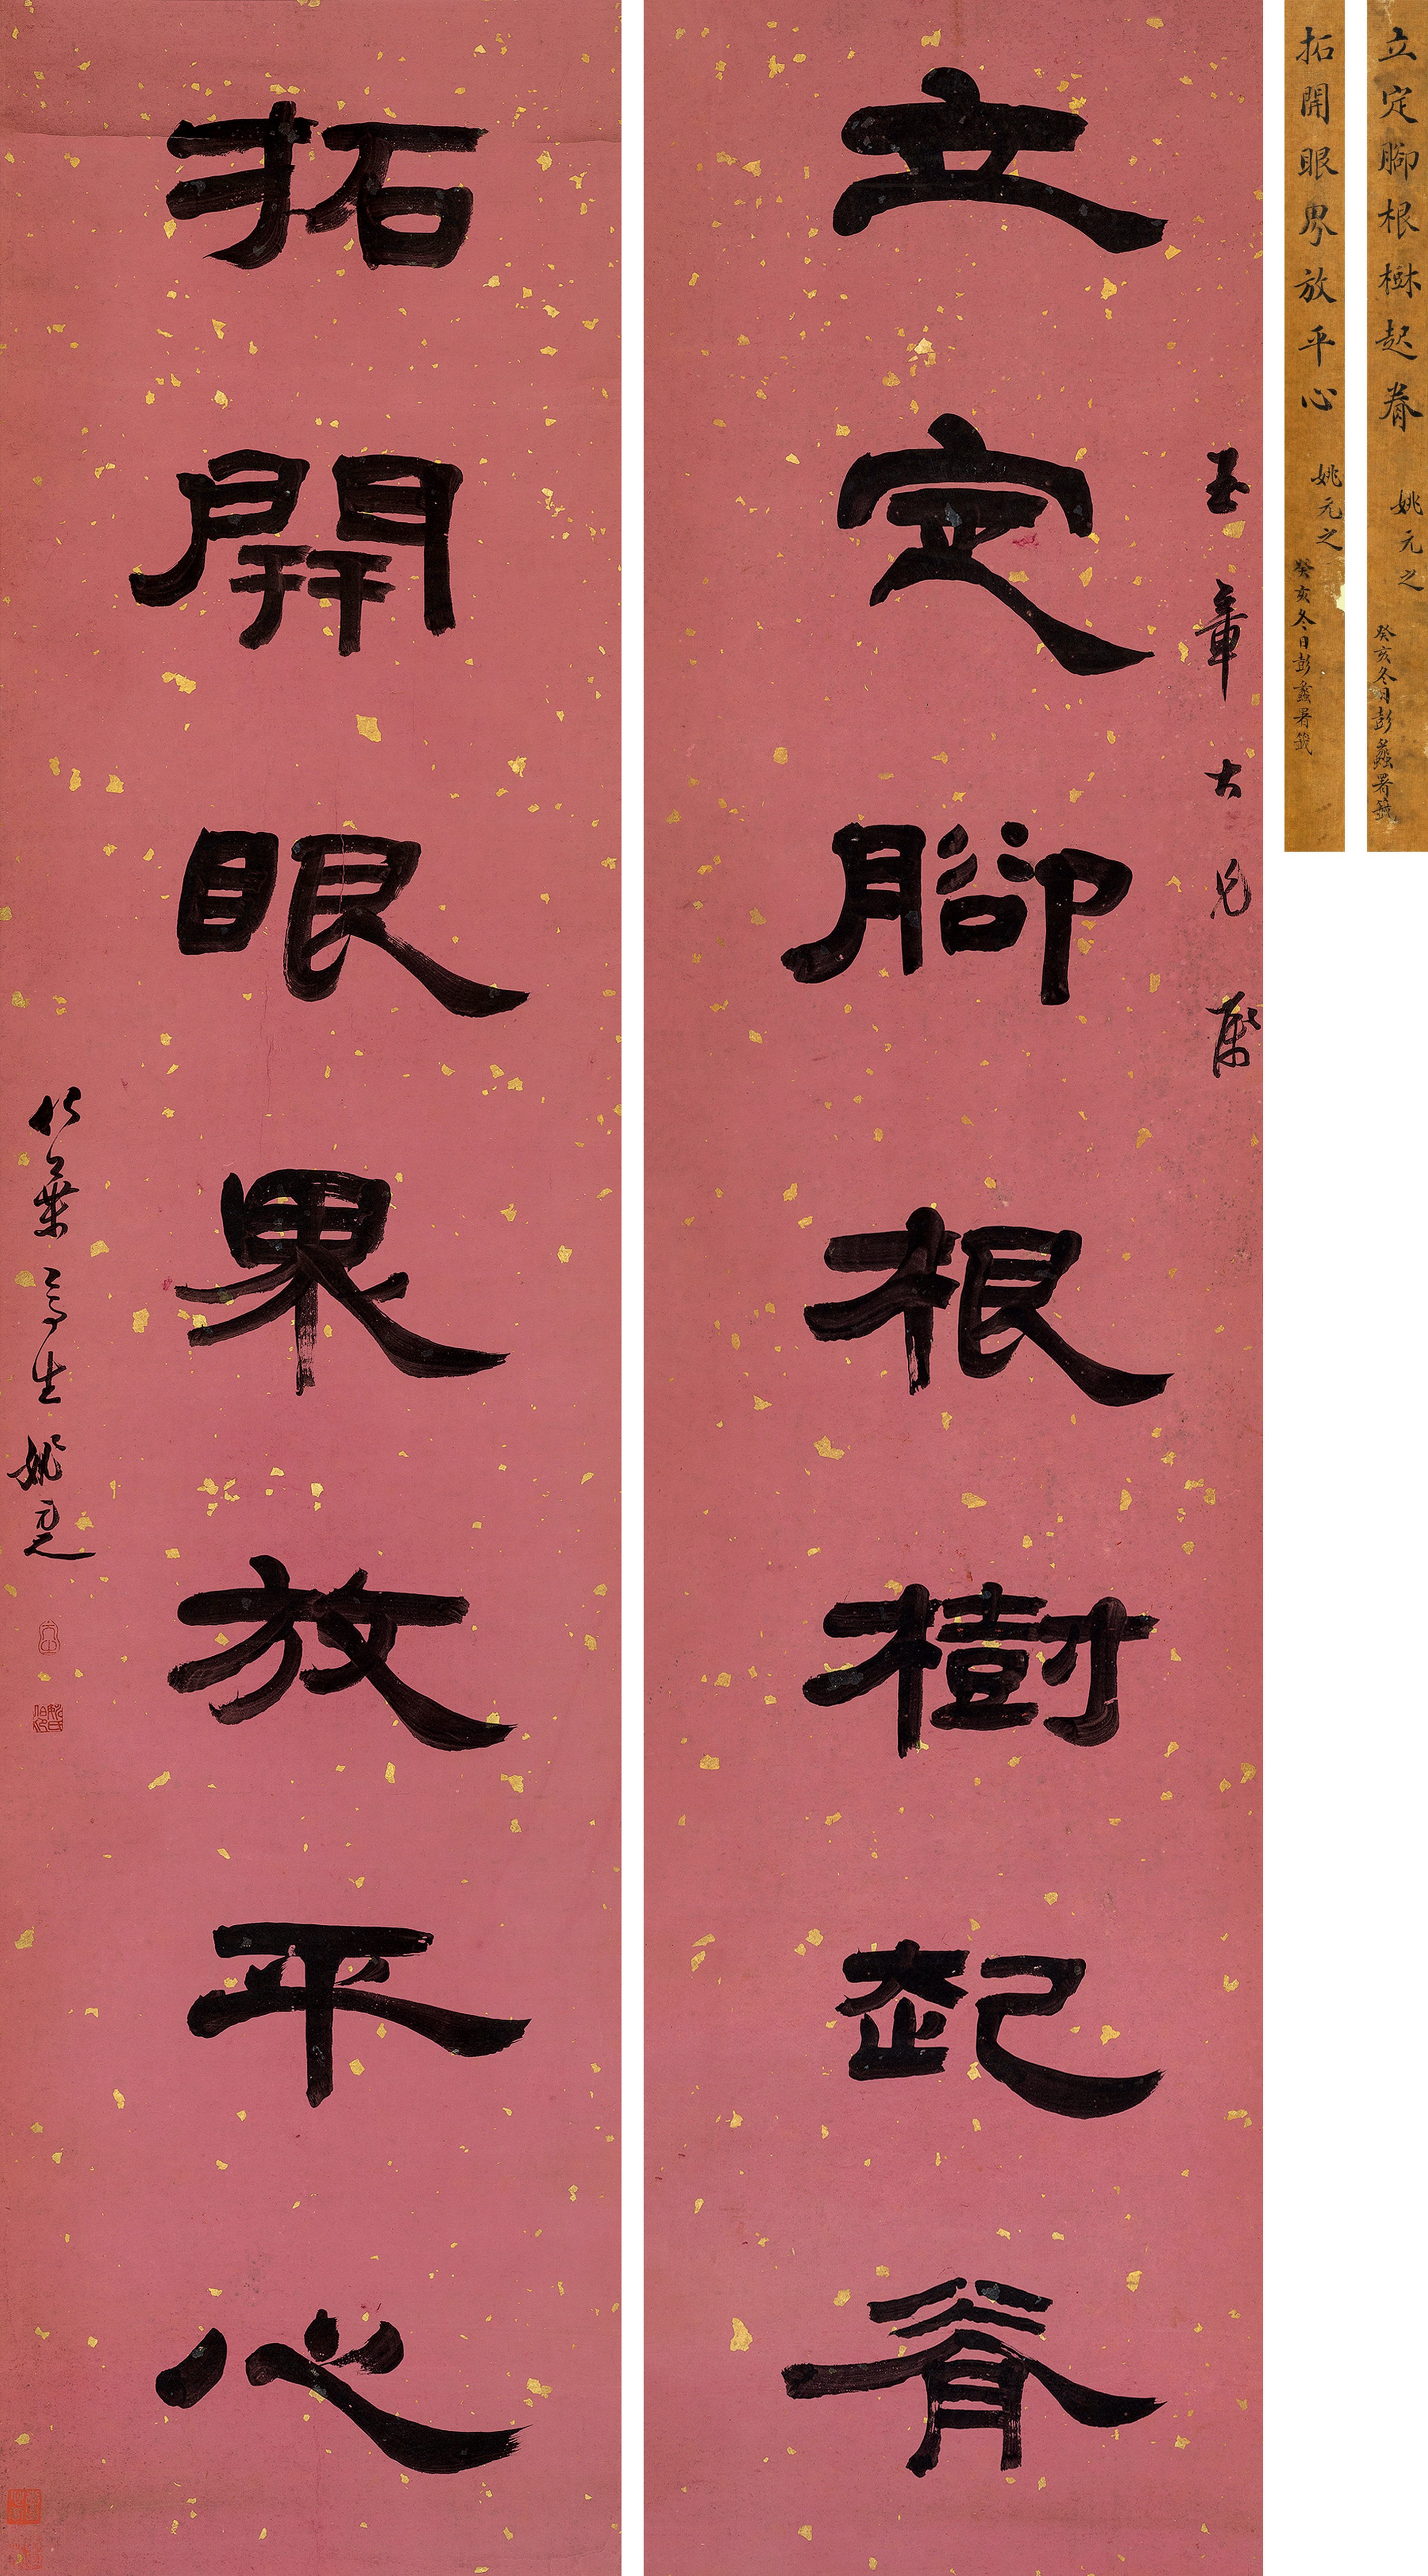 立定腳根樹起脊 姚元之
癸亥冬日彭蠡署籤
拓開眼界放平心 姚元之
癸亥冬日彭蠡署籤
玉章大兄屬
立定腳根樹起脊
拓開眼界放平心
竹葉亭生姚元之